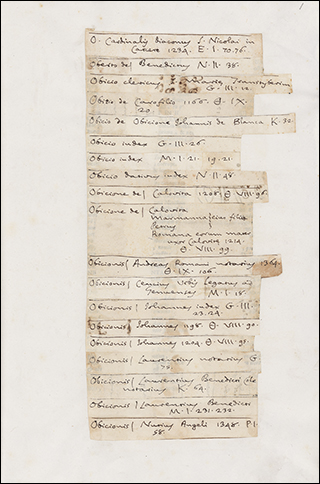 O. Cardinalis diaconus S. Nicolai in
Carcere 1234. E. I. 70.76.
Oberto del Benedictus N. II. 38.
Obicio clericus
G. III. 12.
Obizo de Carofilio 1166. IX.
20.
Obicio de Obicione Johannis de Blanca K. 32.
Obicio iudex G. III. 26.
Obicio iudex M. I. 21. 19. 21.
Obicio iudex N. II. 48.
Obicione de / Calovita 1208. VIII. 96.
Obicione de / Calovita
filius
Petrus
Romana eorum mater
uxor Calovita 1214.
VIII. 99.
Obicionis / Andreas Romani notarius 1364.
IX. 106.
Obicionis / Urbis legatus ad
Senenses M. I. 18.
Obicionis / Iohannes iudex G. III.
23.24.
Obicionis / Iohannes 1198. VIII. 90.
Obicionis / Iohannes 1204. VIII. 93.
Obicionis / Laurentius notarius G
78.
Obicionis / Laurentius Benedicti
notarius K. 64.
Obicionis / Laurentius Benedicti
M. I. 231.232.
Obicionis / Nutius Angeli 1348. P. I.
58.